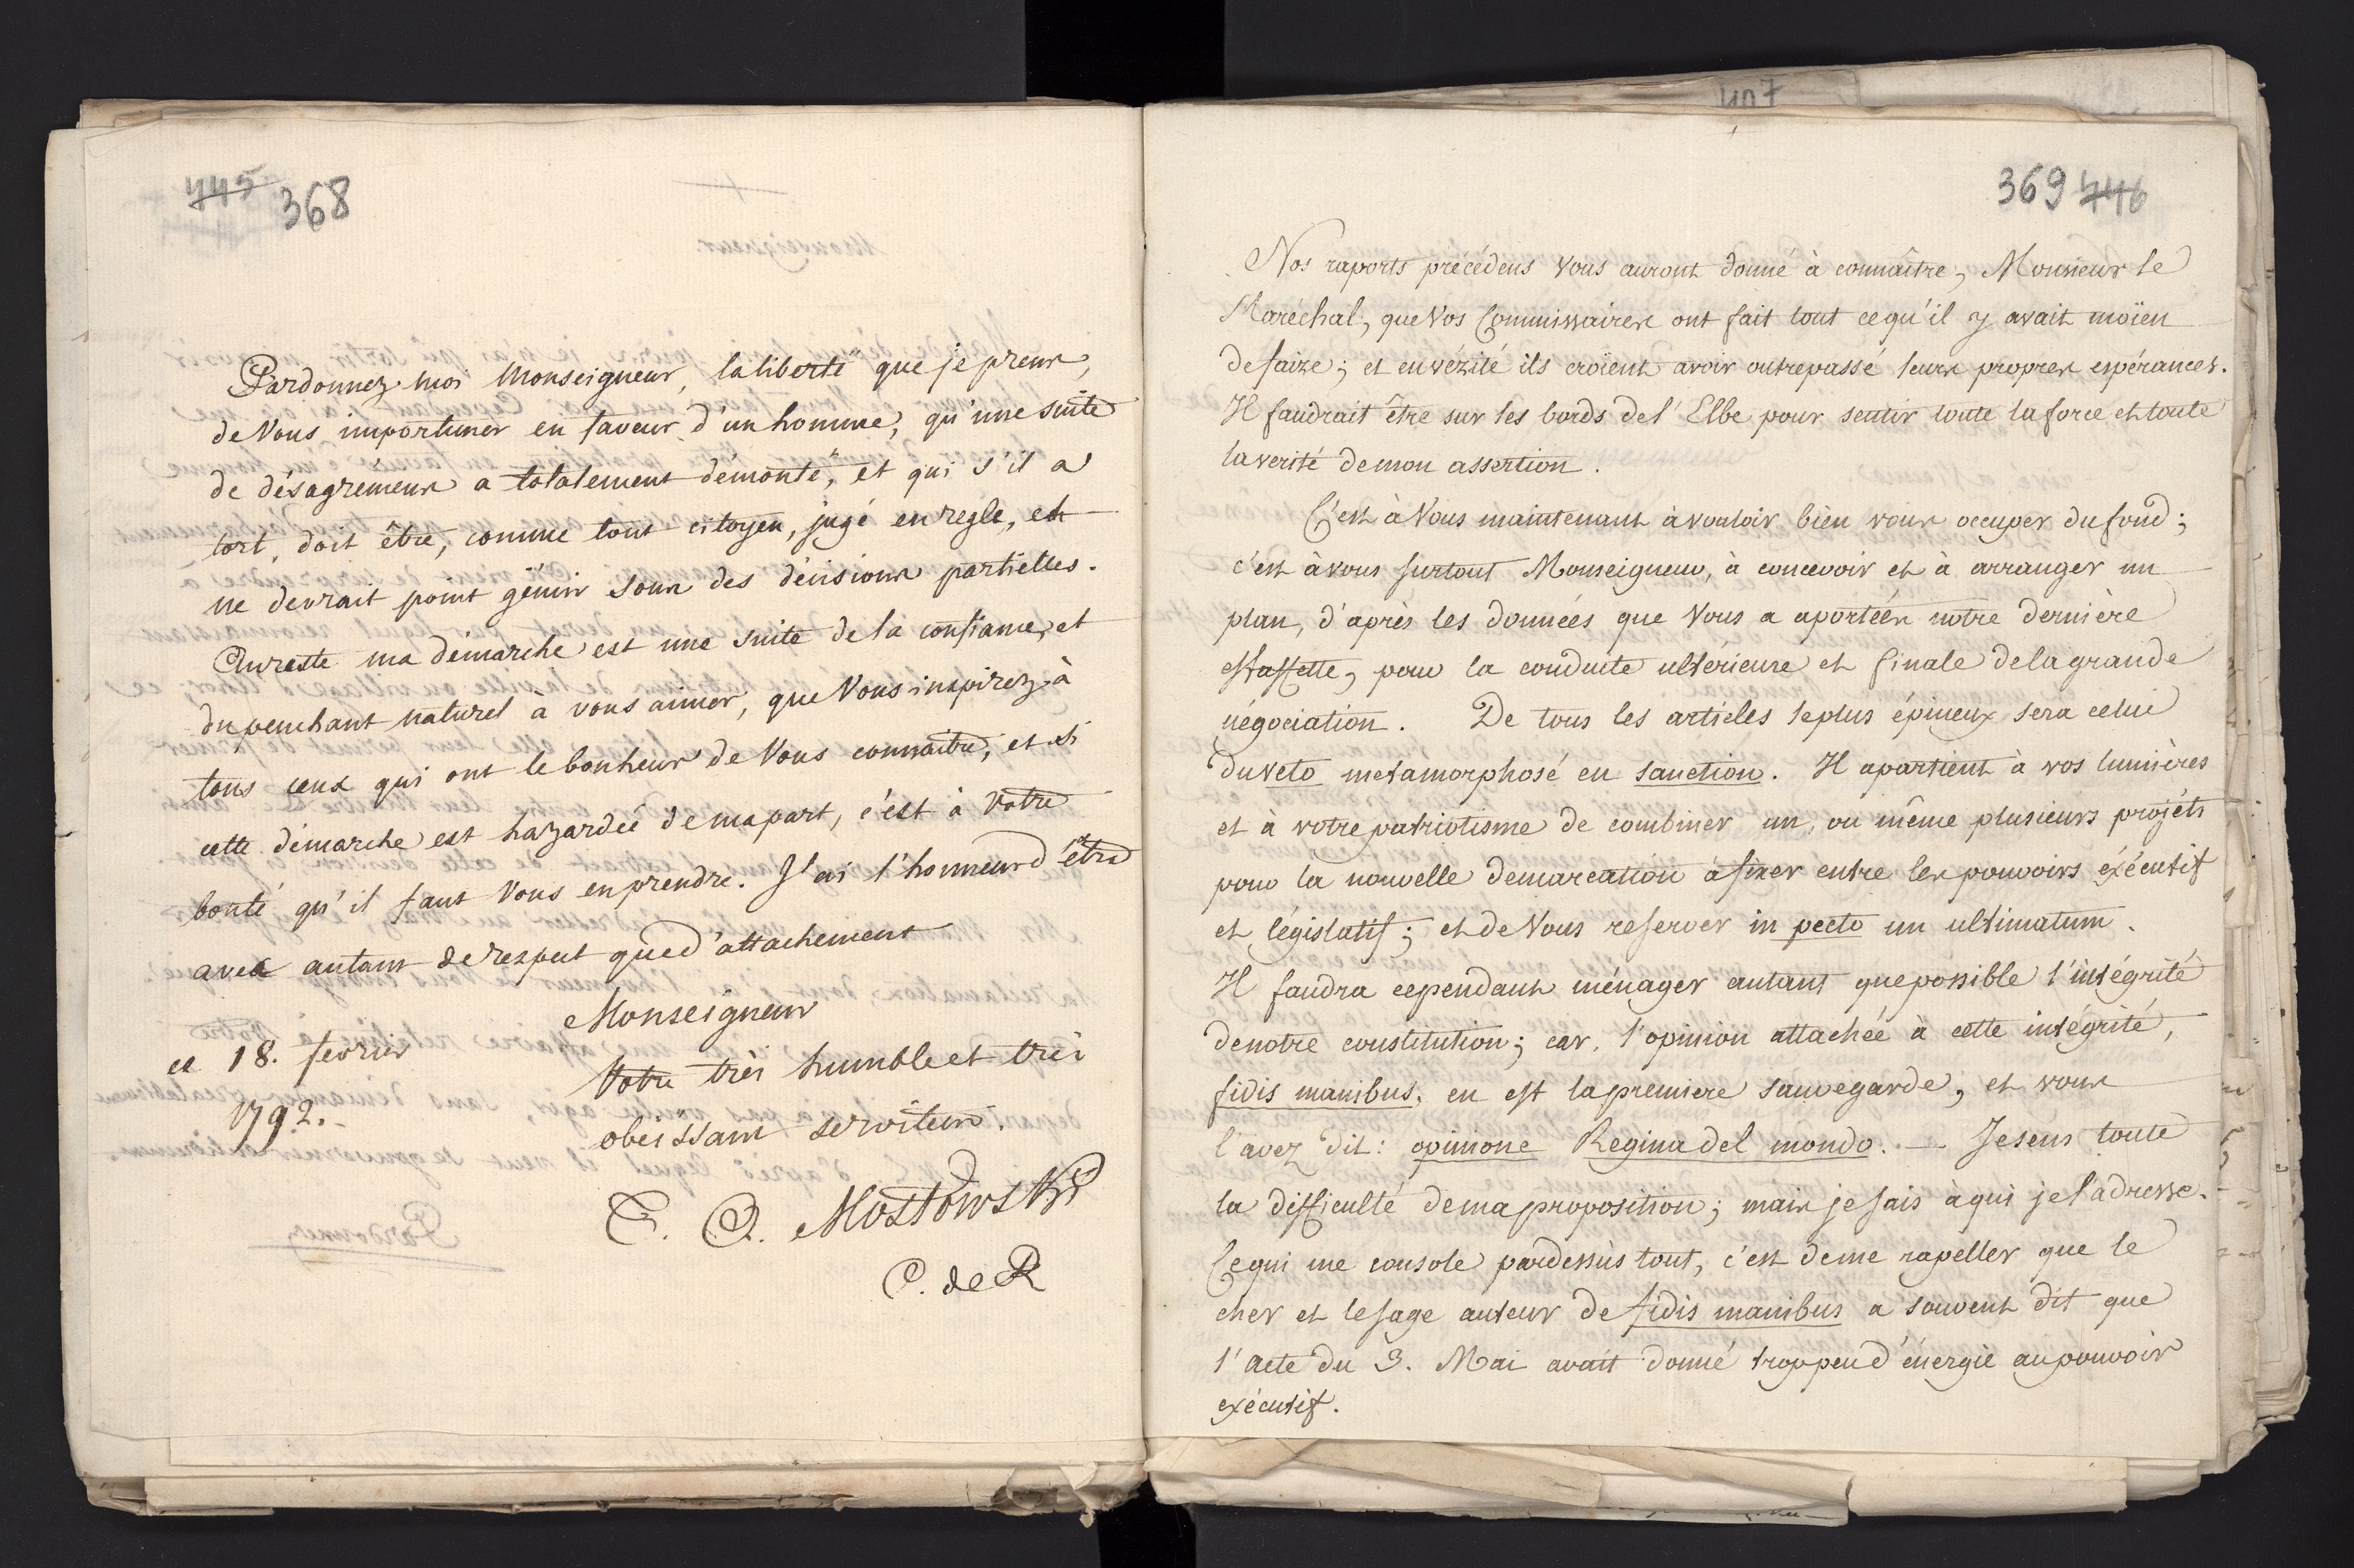 445 368
Pardonnez-moi Monseigneur, la liberté que je prens,
de Vous importuner en faveur d'un homme, qu'une suite
de désagrémens a totalement démonté, et qui s'il a
tort, doit être, comme tout citoyen, jugé en regle, et
ne devrait point gémir sous des décisions partielles.
Aureste ma démarche est une suite de la confiance, et
du penchant naturel à vous aimer, que Vous inspirez à
tous ceux qui ont le bonheur de Vous connaitre, et si
cette démarche est hazardée de ma part, c'est à Votre
bonté qu'il faut Vous en prendre. J'ai l'honneur d'être
avec autant de respect que d'attachement
Monseigneur
ce 18. fevrier
1792.
Votre très humble et très
obeissant serviteur.
Mostowski
C. de R
407
369 446
Nos raports précédens Vous auront donné à connaître, Monsieur le
Maréchal, que Vos Commissaires ont fait tout ce qu'il y avait moïen
de faire; et en vérité ils croïent avoir outrepassé leurs propres espérances.
Il faudrait être sur les bords de l'Elbe pour sentir toute la force et toute
la verité de mon assertion.
C'est à Vous maintenant à vouloir bien vous occuper du fond;
c'est à vous surtout Monseigneur, à concevoir et à arranger un
plan, d'après les données que Vous a aportées notre dernière
estaffette, pour la conduite ultérieure et finale de la grande
négociation. De tous les articles le plus épineux sera celui
du veto metamorphosé en sanction. Il apartient à vos lumières
et à votre patriotisme de combiner un, ou même plusieurs projéts
pour la nouvelle demarcation à fixer entre les pouvoirs éxécutif
et législatif; et de Vous reserver in pecto un ultimatum.
Il faudra cependant ménager autant que possible l'intégrité
de notre constitution; car, l'opinion attachée à cette intégrité,
fidis manibus, en est la premiere sauvegarde, et vous
l'avez dit: opinione Regina del mondo. — Je sens toute
la difficulté de ma proposition; mais je sais à qui je l'adresse.
Ce qui me console pardessùs tout, c'est de me rapeller que le
cher et le sage auteur de fidis manibus a souvent dit que
l'acte du 3. Mai avait donné trop peu d'énergie au pouvoir
exécutif.